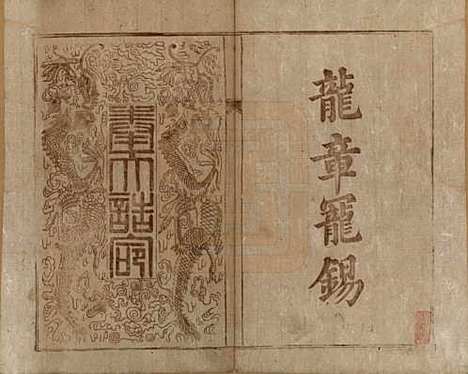 龍章寵錫
奉天誥命